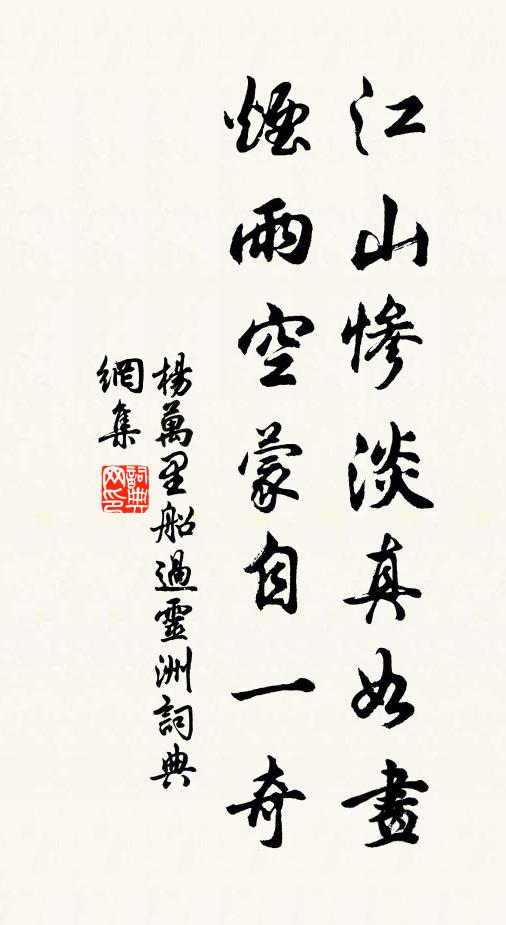 江山慘淡真如畫
煙雨空蒙自一奇
楊萬里船過靈洲詞典
網集
詞典網印